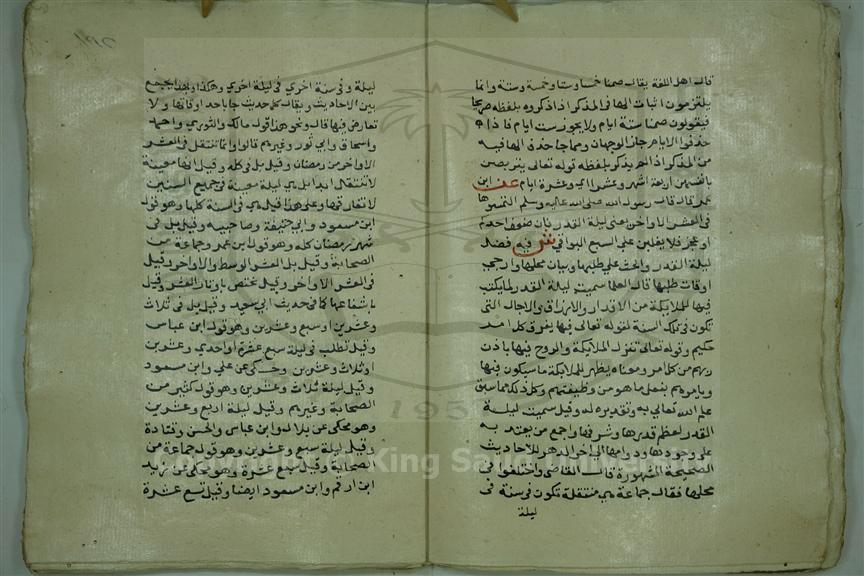 قال اهل اللغة يقال صمنا خمسا وستا وخمسة وستة وانما
يلتزمون اثبات الها في المذكر اذا ذكروه بلفظه صريحا
فيقولون صمنا ستة ايام ولا يجوز ست ايام فاذا
حذفوا الايام جاز الوجهان ومما جا حذف الها فيه
من المذكر اذا لم يذكر بلفظه قوله تعالى يتربصن
بانفسهن اربعة اشهر وعشرا اي وعشرة ايام عن ابن
عمر قال قال رسول الله صلى الله عليه وسلم التمسوها
في العشر الاواخر يعني ليلة القدر فان ضعف احدكم
او عجز فلا يغلبن على السبع البواقي ش فيه فضل
ليلة القدر والحث على طلبها وبيان محلها وارجى
اوقات طلبها قال العلما سميت ليلة القدر لما يكتب
فيها للملايكة من الاقدار والارزاق والاجال التي
تكون في تلك السنة لقوله تعالى فيها يفرق كل امر
حكيم وقوله تعالى تنزل الملايكة والروح فيها باذن
ربهم من كل امر ومعناه يظهر للملايكة ما سيكون فيها
ويامرهم بفعل ما هو من وظيفتهم وكل ذلك مما سبق
علم الله تعالى به وتقديره له وقيل سميت ليلة
القدر لعظم قدرها وشرفها واجمع من يعتد به
على وجودها ودوامها الى اخر الدهر للاحاديث
الصحيحة المشهورة قال القاضي واختلفوا في
محلها فقال جماعة هي منتقلة تكون في سنة في
ليلة
ليلة وفي سنة اخرى في ليلة اخرى وهكذا وبهذا يجمع
بين الاحاديث ويقال كل حديث جا باحد اوقاتها ولا
تعارض فيها قال ونحو هذا قول مالك والثوري واحمد
واسحاق وابي ثور وغيرهم قالوا وانما تنتقل في العشر
الاواخر من رمضان وقيل بل في كله وقيل انها معينة
لا تنتقل ابدا بل هي ليلة معينة في جميع السنين
لا تفارقها وعلى هذا قيل هي في السنة كلها وهو قول
ابن مسعود وابي حنيفة وصاحبيه وقيل بل في
شهر رمضان كله وهو قول ابن عمر وجماعة من
الصحابة وقيل بل العشر الوسط والاواخر وقيل
في العشر الاواخر وقيل تختص باوتار العشر وقيل
باشفاعها كما في حديث ابي سعيد وقيل بل في ثلاث
وعشرين او سبع وعشرين وهو قول ابن عباس
وقيل تطلب في ليلة سبع عشرة او احدى وعشرين
او ثلاث وعشرين وحكي عن علي وابن مسعود
وقيل ليلة ثلاث وعشرين وهو قول كثير من
الصحابة وغيرهم وقيل ليلة اربع وعشرين
وهو محكى عن بلال وابن عباس والحسن وقتادة
وقيل ليلة سبع وعشرين وهو قول جماعة من
الصحابة وقيل سبع عشرة وهو محكى عن زيد
ابن ارقم وابن مسعود ايضا وقيل تسع عشرة